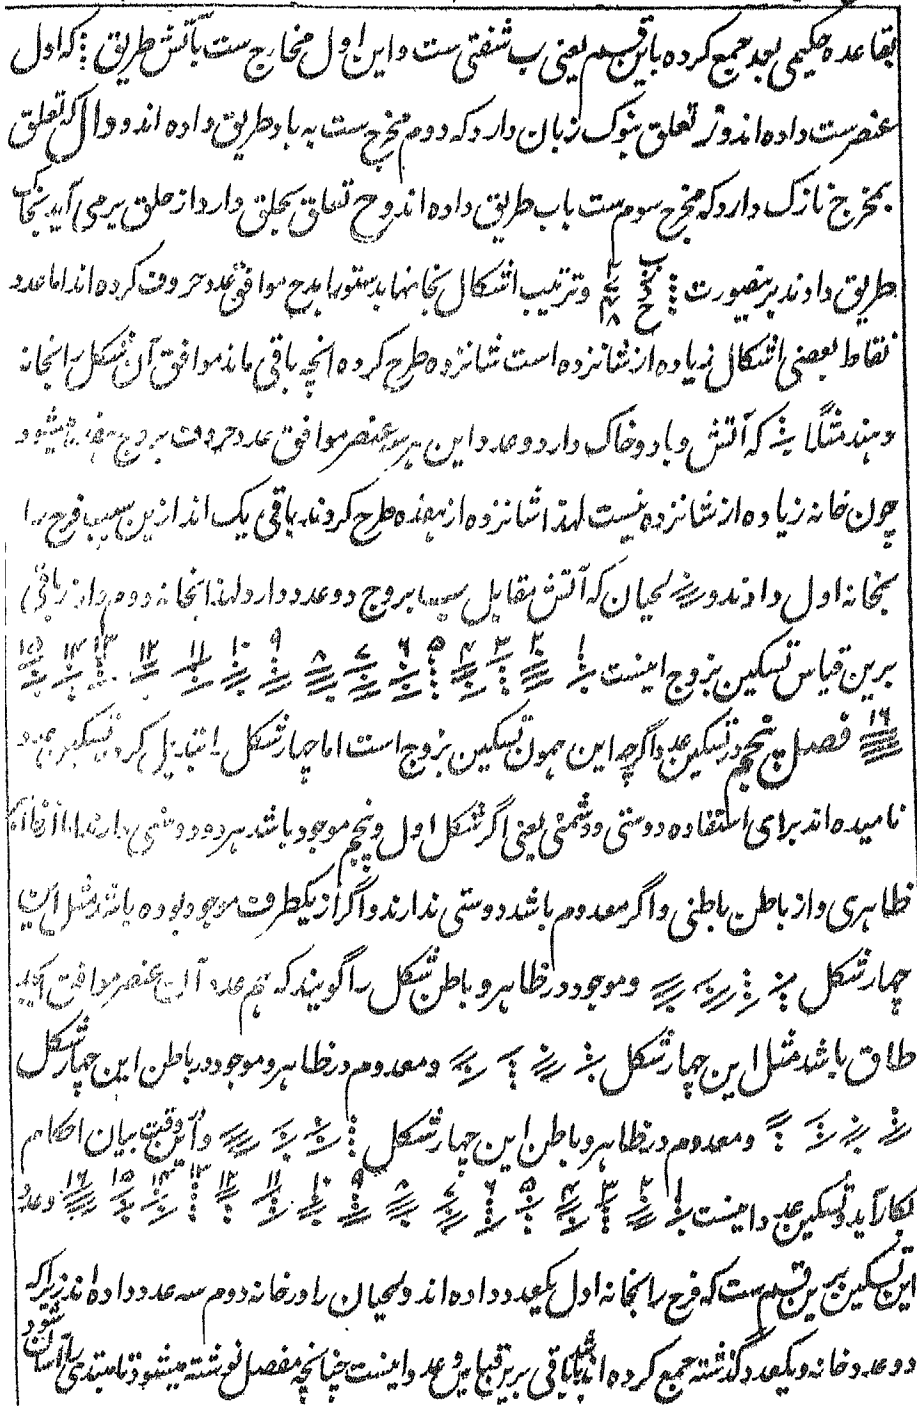 بقاعده حکیمی بعد جمع کرده باین قسم یعنی ب شفتی ست و این اول مخارج ست بآتش طریق که اول
عنصرست داده اند و ز تعلق بنوک زبان دارد که دوم مخرج ست به باد طریق داده اند و دال که تعلق
بمخرج نازک دارد که مخرج سوم ست باب طریق داده اند و ح تعلق بحلق دارد از حلق برمی آید بخاک
طریق دادند برینصورت ب ۲ ز ۷ د ۴ ح ۸ و ترتیب اشکال بخانها بدستور ابدح موافق عدد حروف کرده اند اما عدد
نقاط بعضی اشکال زیاده از شانزده است شانزده طرح کرده انچه باقی ماند موافق آن شکل را بخانه
دهند مثلا که آتش و باد و خاک دارد و عدد این هر سه عنصر موافق عدد حروف بزوج هفده میشود
چون خانه زیاده از شانزده نیست لهذا شانزده از هفده طرح کردند باقی یک اند ازین سبب فرح را
بخانه اول دادند و لحیان که آتش مقابل بزوج دو عدد دارد لهذا بخانه دوم دادند باقی
برین قیاس تسکین بزوج اینست ۱ ۲ ۳ ۴ ۵ ۶ ۷ ۸ ۹ ۱۰ ۱۱ ۱۲ ۱۳ ۱۴ ۱۵
۱۶ فصل پنجم در تسکین عدد اگرچه این همون تسکین بزوج است اما چهار شکل را تبدیل کرده تسکین عدد
نامیده اند برای استفاده دوستی و دشمنی یعنی اگر شکل اول و پنجم موجود باشد هر دو دوستی دارند
ظاهری و از باطن باطنی و اگر معدوم باشد دوستی ندارند و اگر از یکطرف موجود بوده باشد مثل این
چهار شکل و موجود در ظاهر و باطن شکل را گویند که هم عدد آن عنصر موافق
طاق باشد مثل این چهار شکل و معدوم در ظاهر و موجود در باطن این چهار شکل
و معدوم در ظاهر و باطن این چهار شکل و این وقت بیان احکام
بکار آید و تسکین عدد اینست ۱ ۲ ۳ ۴ ۵ ۶ ۷ ۸ ۹ ۱۰ ۱۱ ۱۲ ۱۳ ۱۴ ۱۵ ۱۶ و عدد
این تسکین برین قسم ست که فرح را بخانه اول یکعدد داده اند و لحیان را در خانه دوم سه عدد داده اند زیرا که
دو عدد خانه و یکعدد گذشته جمع کرده اند باقی برین قیاس و عدد اینست چنانچه مفصل نوشته میشود تا مبتدی را آسان شود